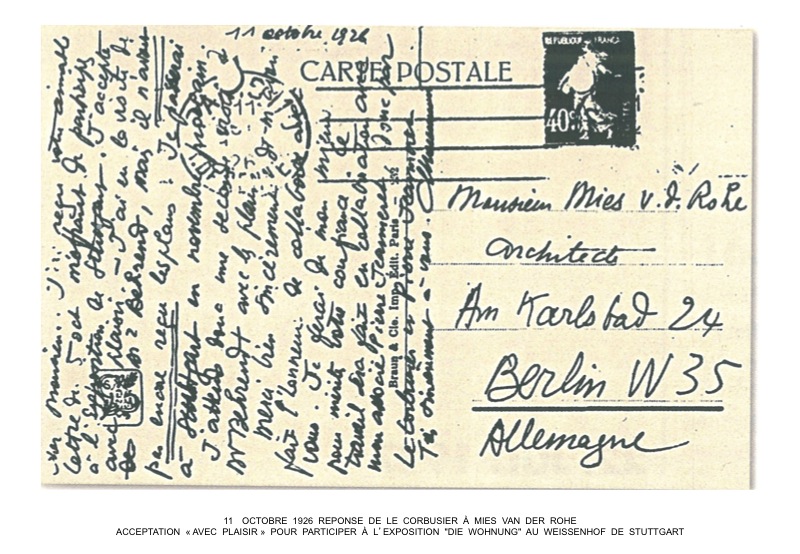 11 octobre 1926
CARTE POSTALE
REPUBLIQUE FRANÇAISE
40c
cher monsieur. J'ai reçu votre aimable
lettre du 5 oct m'invitant à participer
à l'Exposition de Stuttgart. J'accepte
avec plaisir. — J'ai eu la visite de
de Mr Behrendt, mais il n'avait
pas encore reçu les plans. Je passerai
à Stuttgart en novembre prochain.
J'attends donc une seconde visite de
Mr Behrendt avec le plan.
Merci très sincèrement de m'avoir
fait l'honneur de collaborer avec
vous. Je ferai de mon mieux
pour mériter votre confiance. Le
travail sera fait en collaboration avec
mon associé Pierre Jeanneret donc par
Le Corbusier et Pierre Jeanneret.
Très sincèrement à vous.
Braun & Cie. Imp. Édit. Paris
Monsieur Mies v. d. Rohe
Architecte
Am Karlsbad 24
Berlin W 35
Allemagne
11 OCTOBRE 1926 REPONSE DE LE CORBUSIER À MIES VAN DER ROHE
ACCEPTATION « AVEC PLAISIR » POUR PARTICIPER À L'EXPOSITION "DIE WOHNUNG" AU WEISSENHOF DE STUTTGART